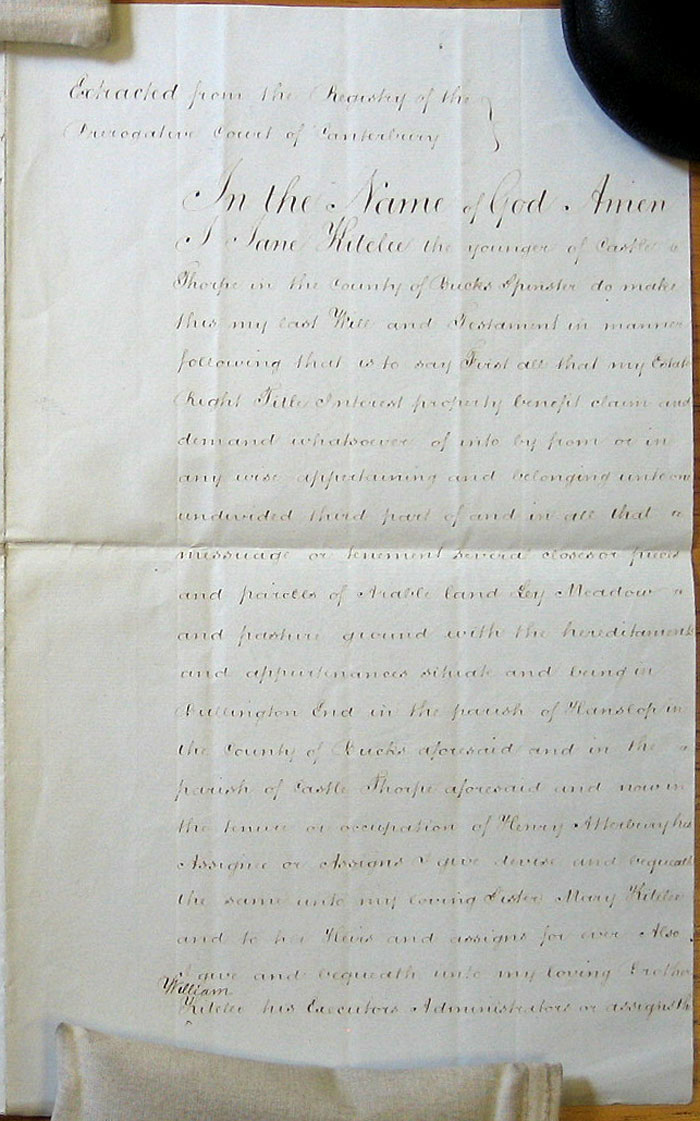 Extracted from the Registry of the
Prerogative Court of Canterbury
In the Name of God Amen
I Jane Kitelee the younger of Castle
Thorpe in the County of Bucks Spinster do make
this my last Will and Testament in manner
following that is to say First all that my Estat
Right Title Interest property benefit claim and
demand whatsoever of into by from or in
any wise appertaining and belonging unto one
undivided third part of and in all that a
messuage or tenement several closes or pieces
and parcells of Arable land Ley Meadow
and pasture ground with the hereditaments
and appurtenances situate and being in
Bullington End in the parish of Hanslop in
the County of Bucks aforesaid and in the
parish of Castle Thorpe aforesaid and now in
the tenure or occupation of Henry Atterbury his
Assignee or Assigns I give devise and bequeath
the same unto my loving Sister Mary Kitelee
and to her Heirs and assigns for ever Also
I give and bequeath unto my loving Brothe
William
Kitelee his Executors Administrators or assigns th